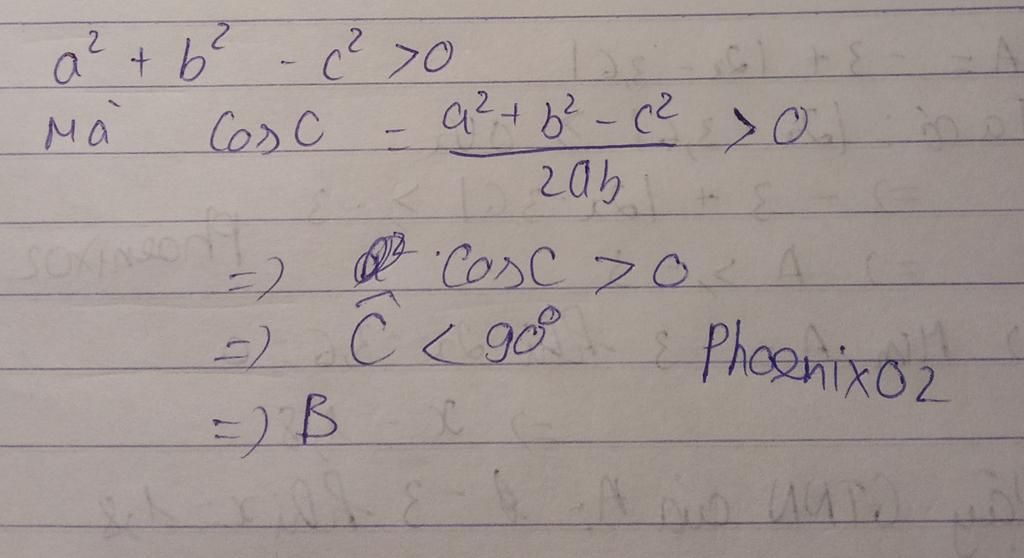 a² + b² - c² > 0
Mà CosC = a² + b² - c² / 2ab > 0
=) CosC > 0
=) Ĉ < 90°
Phoenix02
=) B